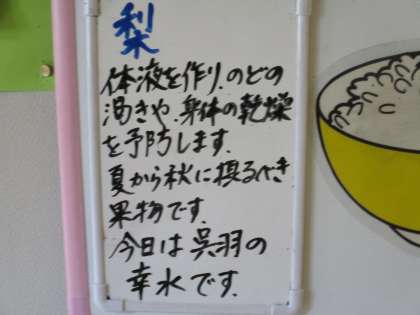 梨
体液を作り、のどの
渇きや、身体の乾燥
を予防します。
夏から秋に摂るべき
果物です。
今日は呉羽の
幸水です。